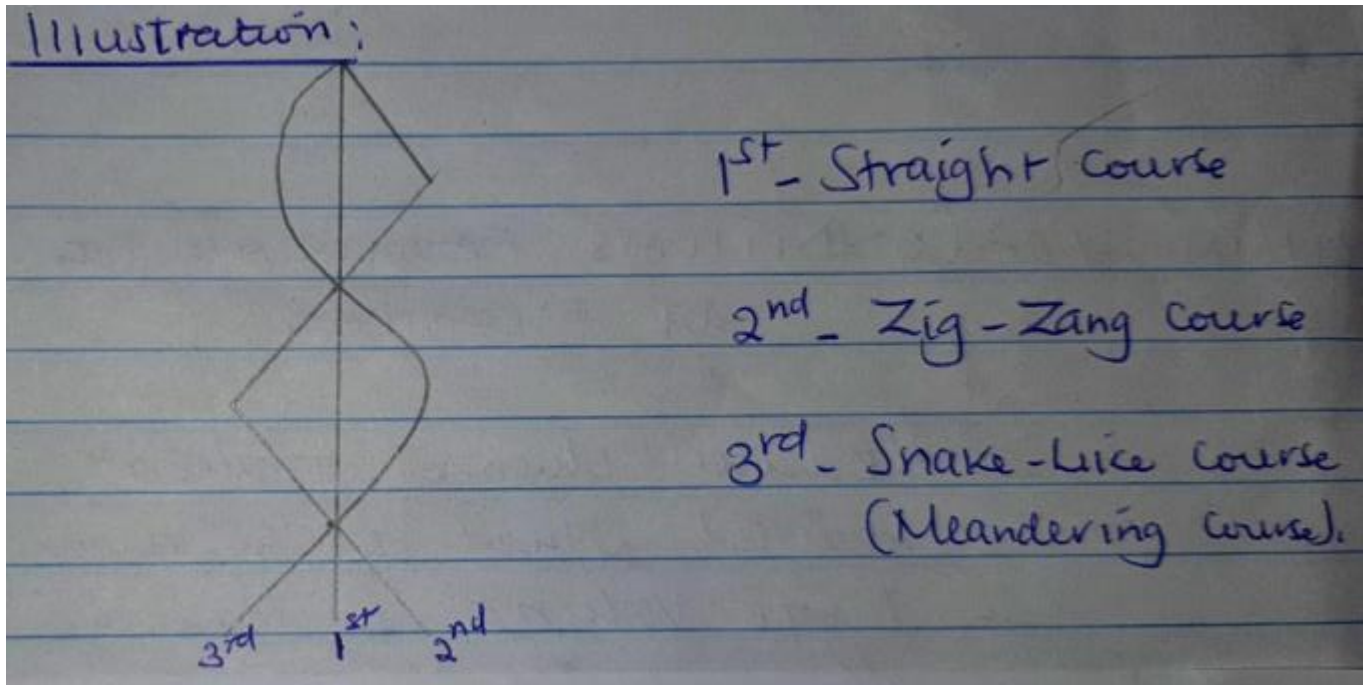 Illustration:
1st - Straight Course
2nd - Zig - Zang Course
3rd - Snake - Like Course
(Meandering Course).
3rd 1st 2nd